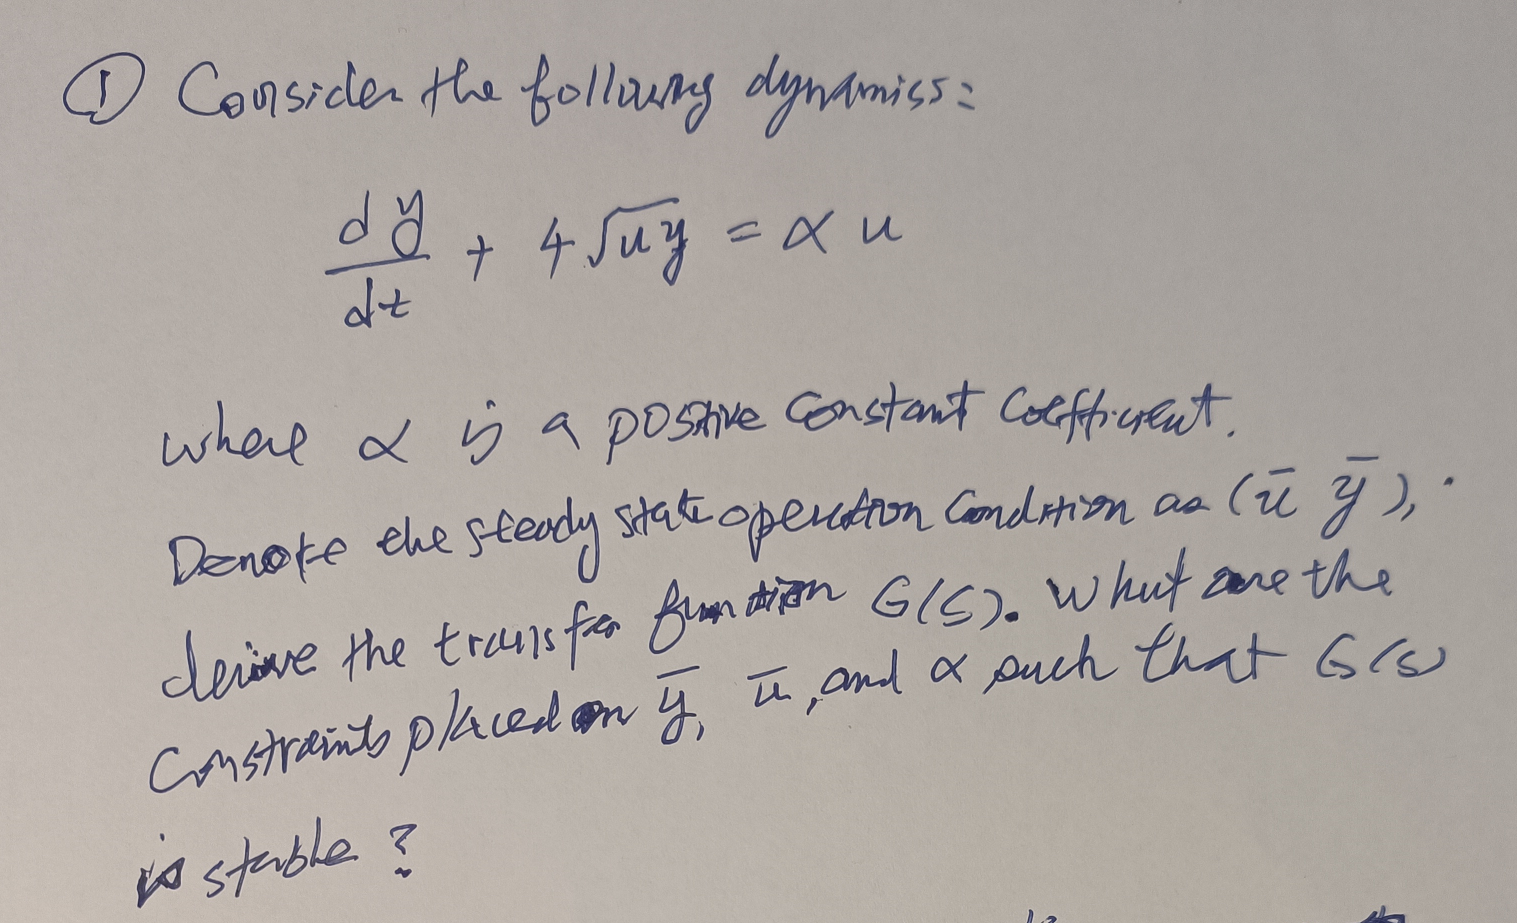 ① Consider the following dynamics:
dy/dt + 4√uy = α u
where α is a positive constant coefficient.
Denote the steady state operation condition as (ū ȳ),
derive the transfer function G(s). What are the
constraints placed on ȳ, ū, and α such that G(s)
is stable?